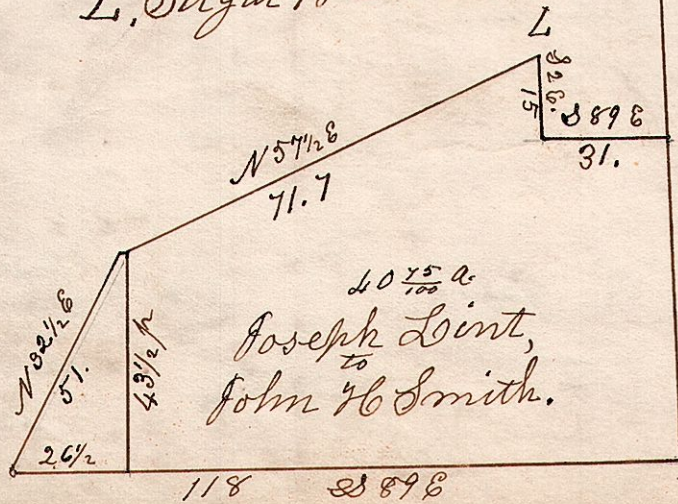 L.
L
S 2 E.
15
S 89 E
31.
N 57 1/2 E
71.7
40 75/100 a.
Joseph Lint,
to
John H Smith.
N 32 1/2 E
51.
43 1/2 p
26 1/2
118 S 89 E